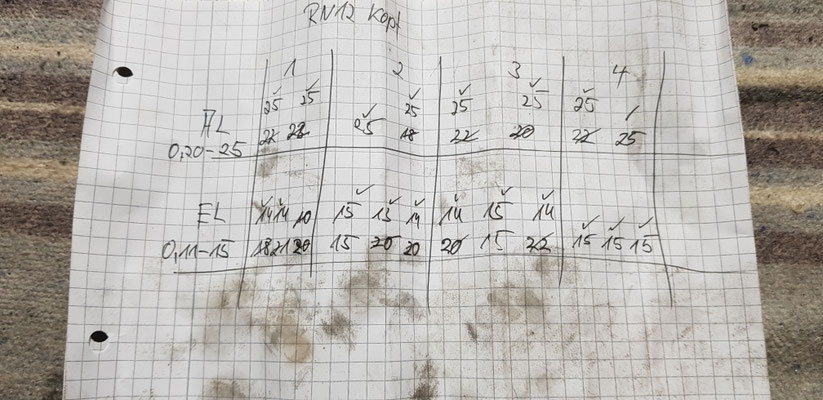 RN12 Kopf
1 2 3 4
25 25 25 25 25 25
AL 22 22 25 18 22 20 22 25
0,20-25
EL 14 14 10 15 13 14 14 15 14
0,11-15 18 21 20 15 20 20 20 15 22 15 15 15